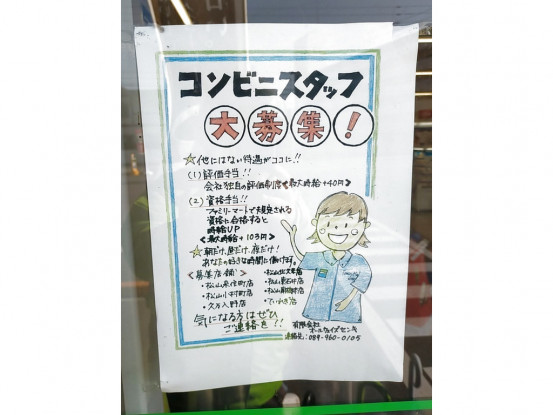 コンビニスタッフ
大募集!
☆他にはない待遇がココに!!
(1)評価手当!!
会社独自の評価制度<最大時給+40円>
(2)資格手当!!
ファミリーマートで規定される
資格に合格すると
時給UP
<最大時給+103円>
☆朝だけ、昼だけ、夜だけ!
あなたの好きな時間に働けます。
<募集店舗>
・松山余戸町店
・松山小村町店
・久万入野店
・松山北久米店
・松山東石井店
・松山
・ていれぎ店
気になる方はぜひ
ご連絡を!!
有限会社
オールウェイズセンキ
連絡先:089-960-0105